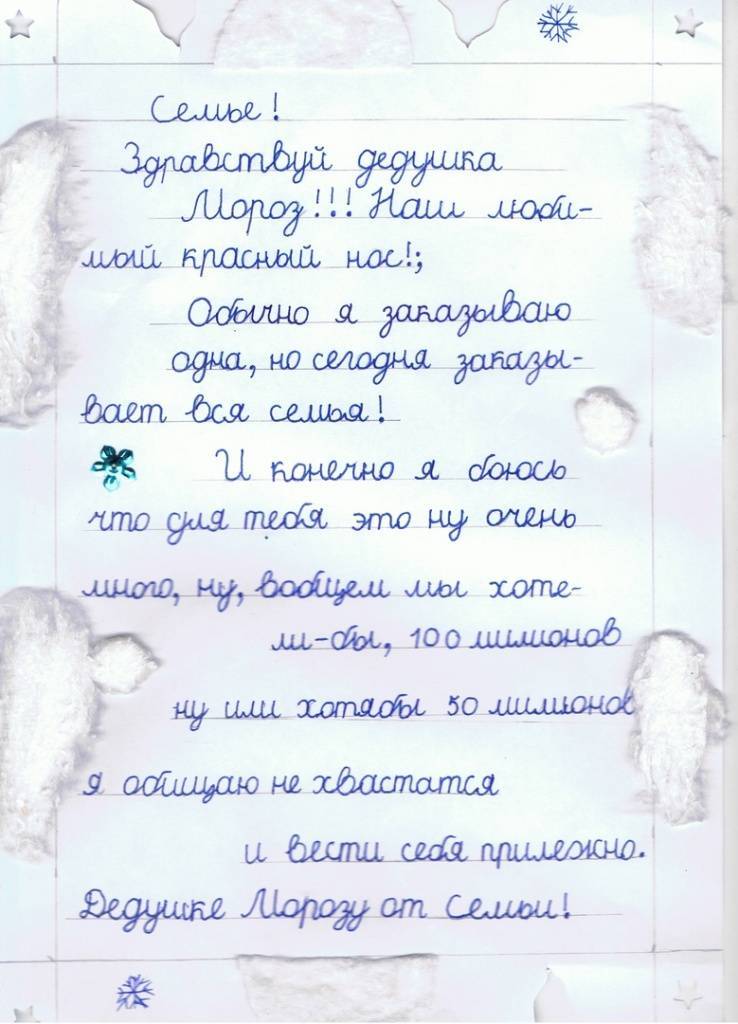 Семье!
Здравствуй дедушка
Мороз!!! Наш люби-
мый красный нос!;
Обычно я заказываю
одна, но сегодня заказы-
вает вся семья!
И конечно я боюсь
что для тебя это ну очень
много, ну, вообщем мы хоте-
ли-бы, 100 милионов
ну или хотябы 50 милионов
я обищаю не хвастатся
и вести себя прилежно.
Дедушке Морозу от Семьи!